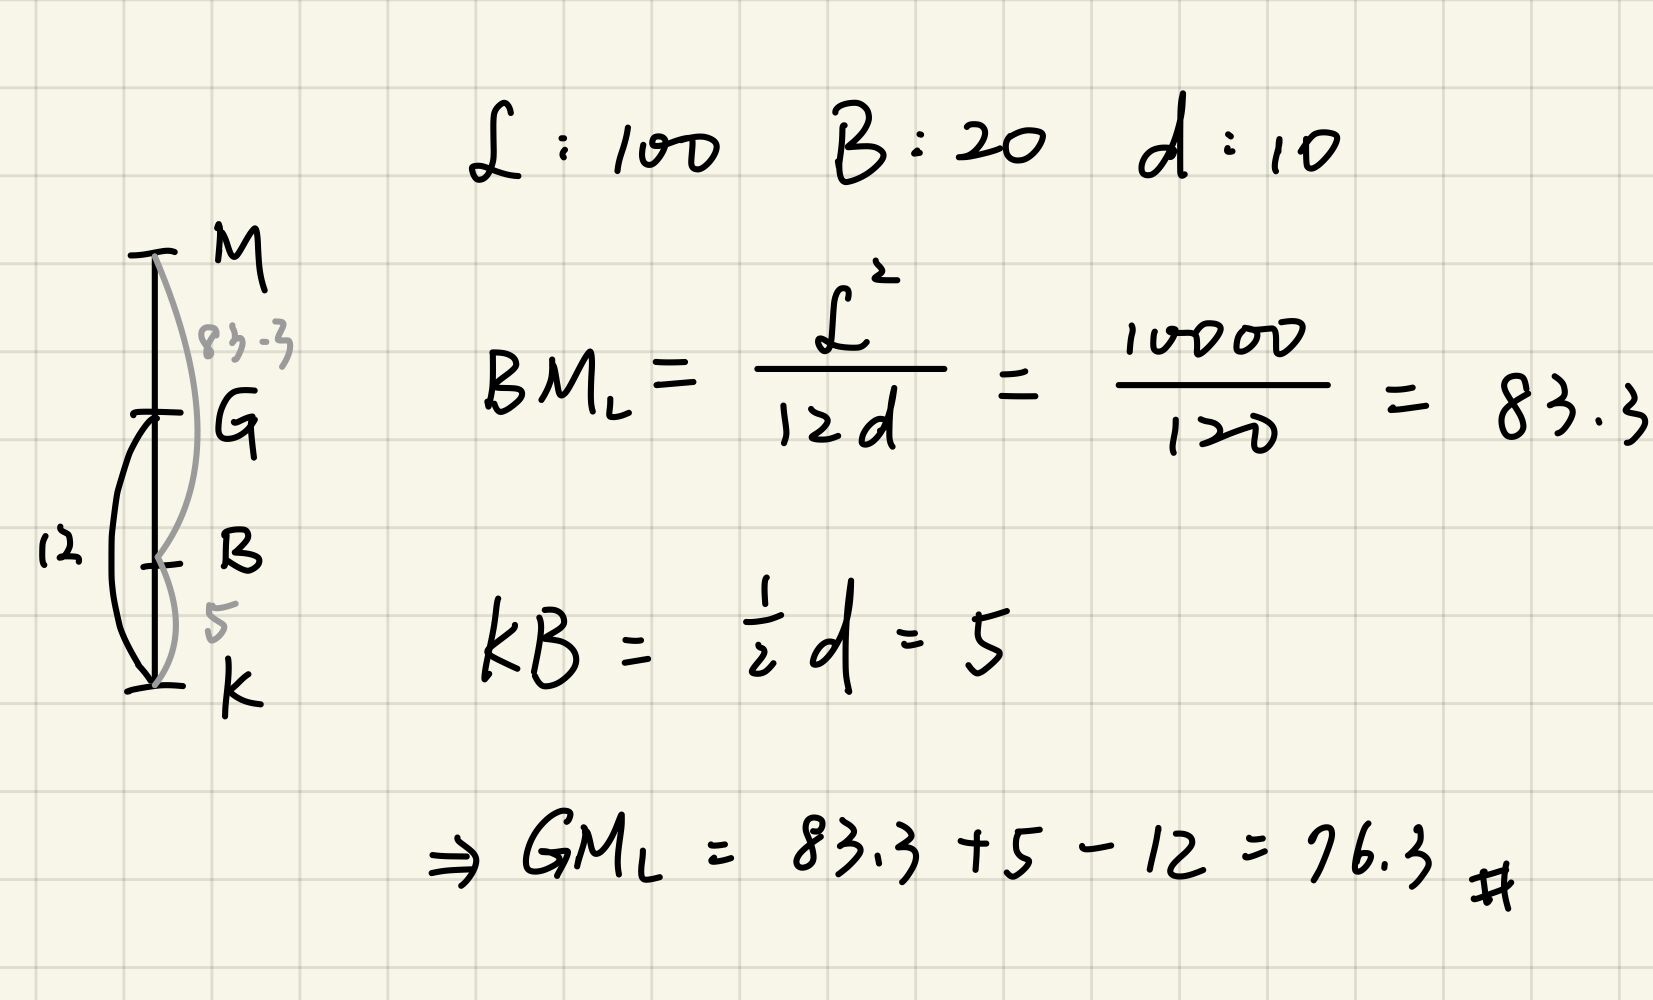 L : 100 B : 20 d : 10
M
83.3
G
12
B
5
K
BM_L = L² / 12d = 10000 / 120 = 83.3
KB = 1/2 d = 5
⇒ GM_L = 83.3 + 5 - 12 = 76.3 #